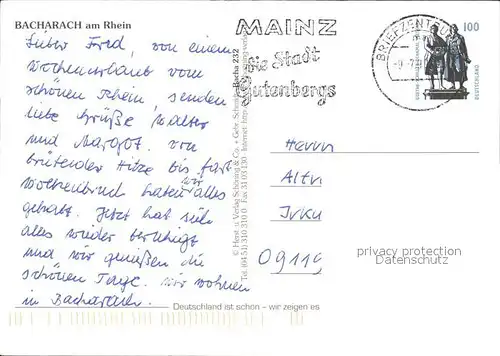 BACHARACH am Rhein
Lieber Fred, von einem
Wochenurlaub vom
schönen Rhein, senden
liebe Grüße Walter
und Margot. Von
brütender Hitze bis fast
Wolkenbruch haben wir alles
gehabt. Jetzt hat sich
alles wieder beruhigt
und wir genießen die
schönen Tage. Wir wohnen
in Bacharach.
Deutschland ist schön – wir zeigen es
Bacha 232
© Horst u. Verlag Schöning & Co. + Gebr. Schmidt
Tel. (04 51) 310 310 0 Fax 31 03 130 Internet: http
MAINZ
Die Stadt
Gutenbergs
BRIEFZENTRUM
100
DEUTSCHLAND
Herrn
09119
privacy protection
Datenschutz